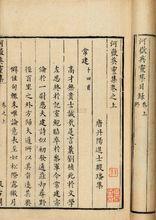 河嶽英靈集目錄
卷上
河嶽英靈集卷之上
唐丹陽進士殷璠集
常建十四首
高才無貴士誠哉是言曩劉楨死於文學
左思終於記室鮑昭卒於參軍今常建亦
淪於一尉悲夫建詩似初發通莊却尋野
徑百里之外方歸大道所以其旨遠其興
僻佳句輒來唯論意表至如松際露微